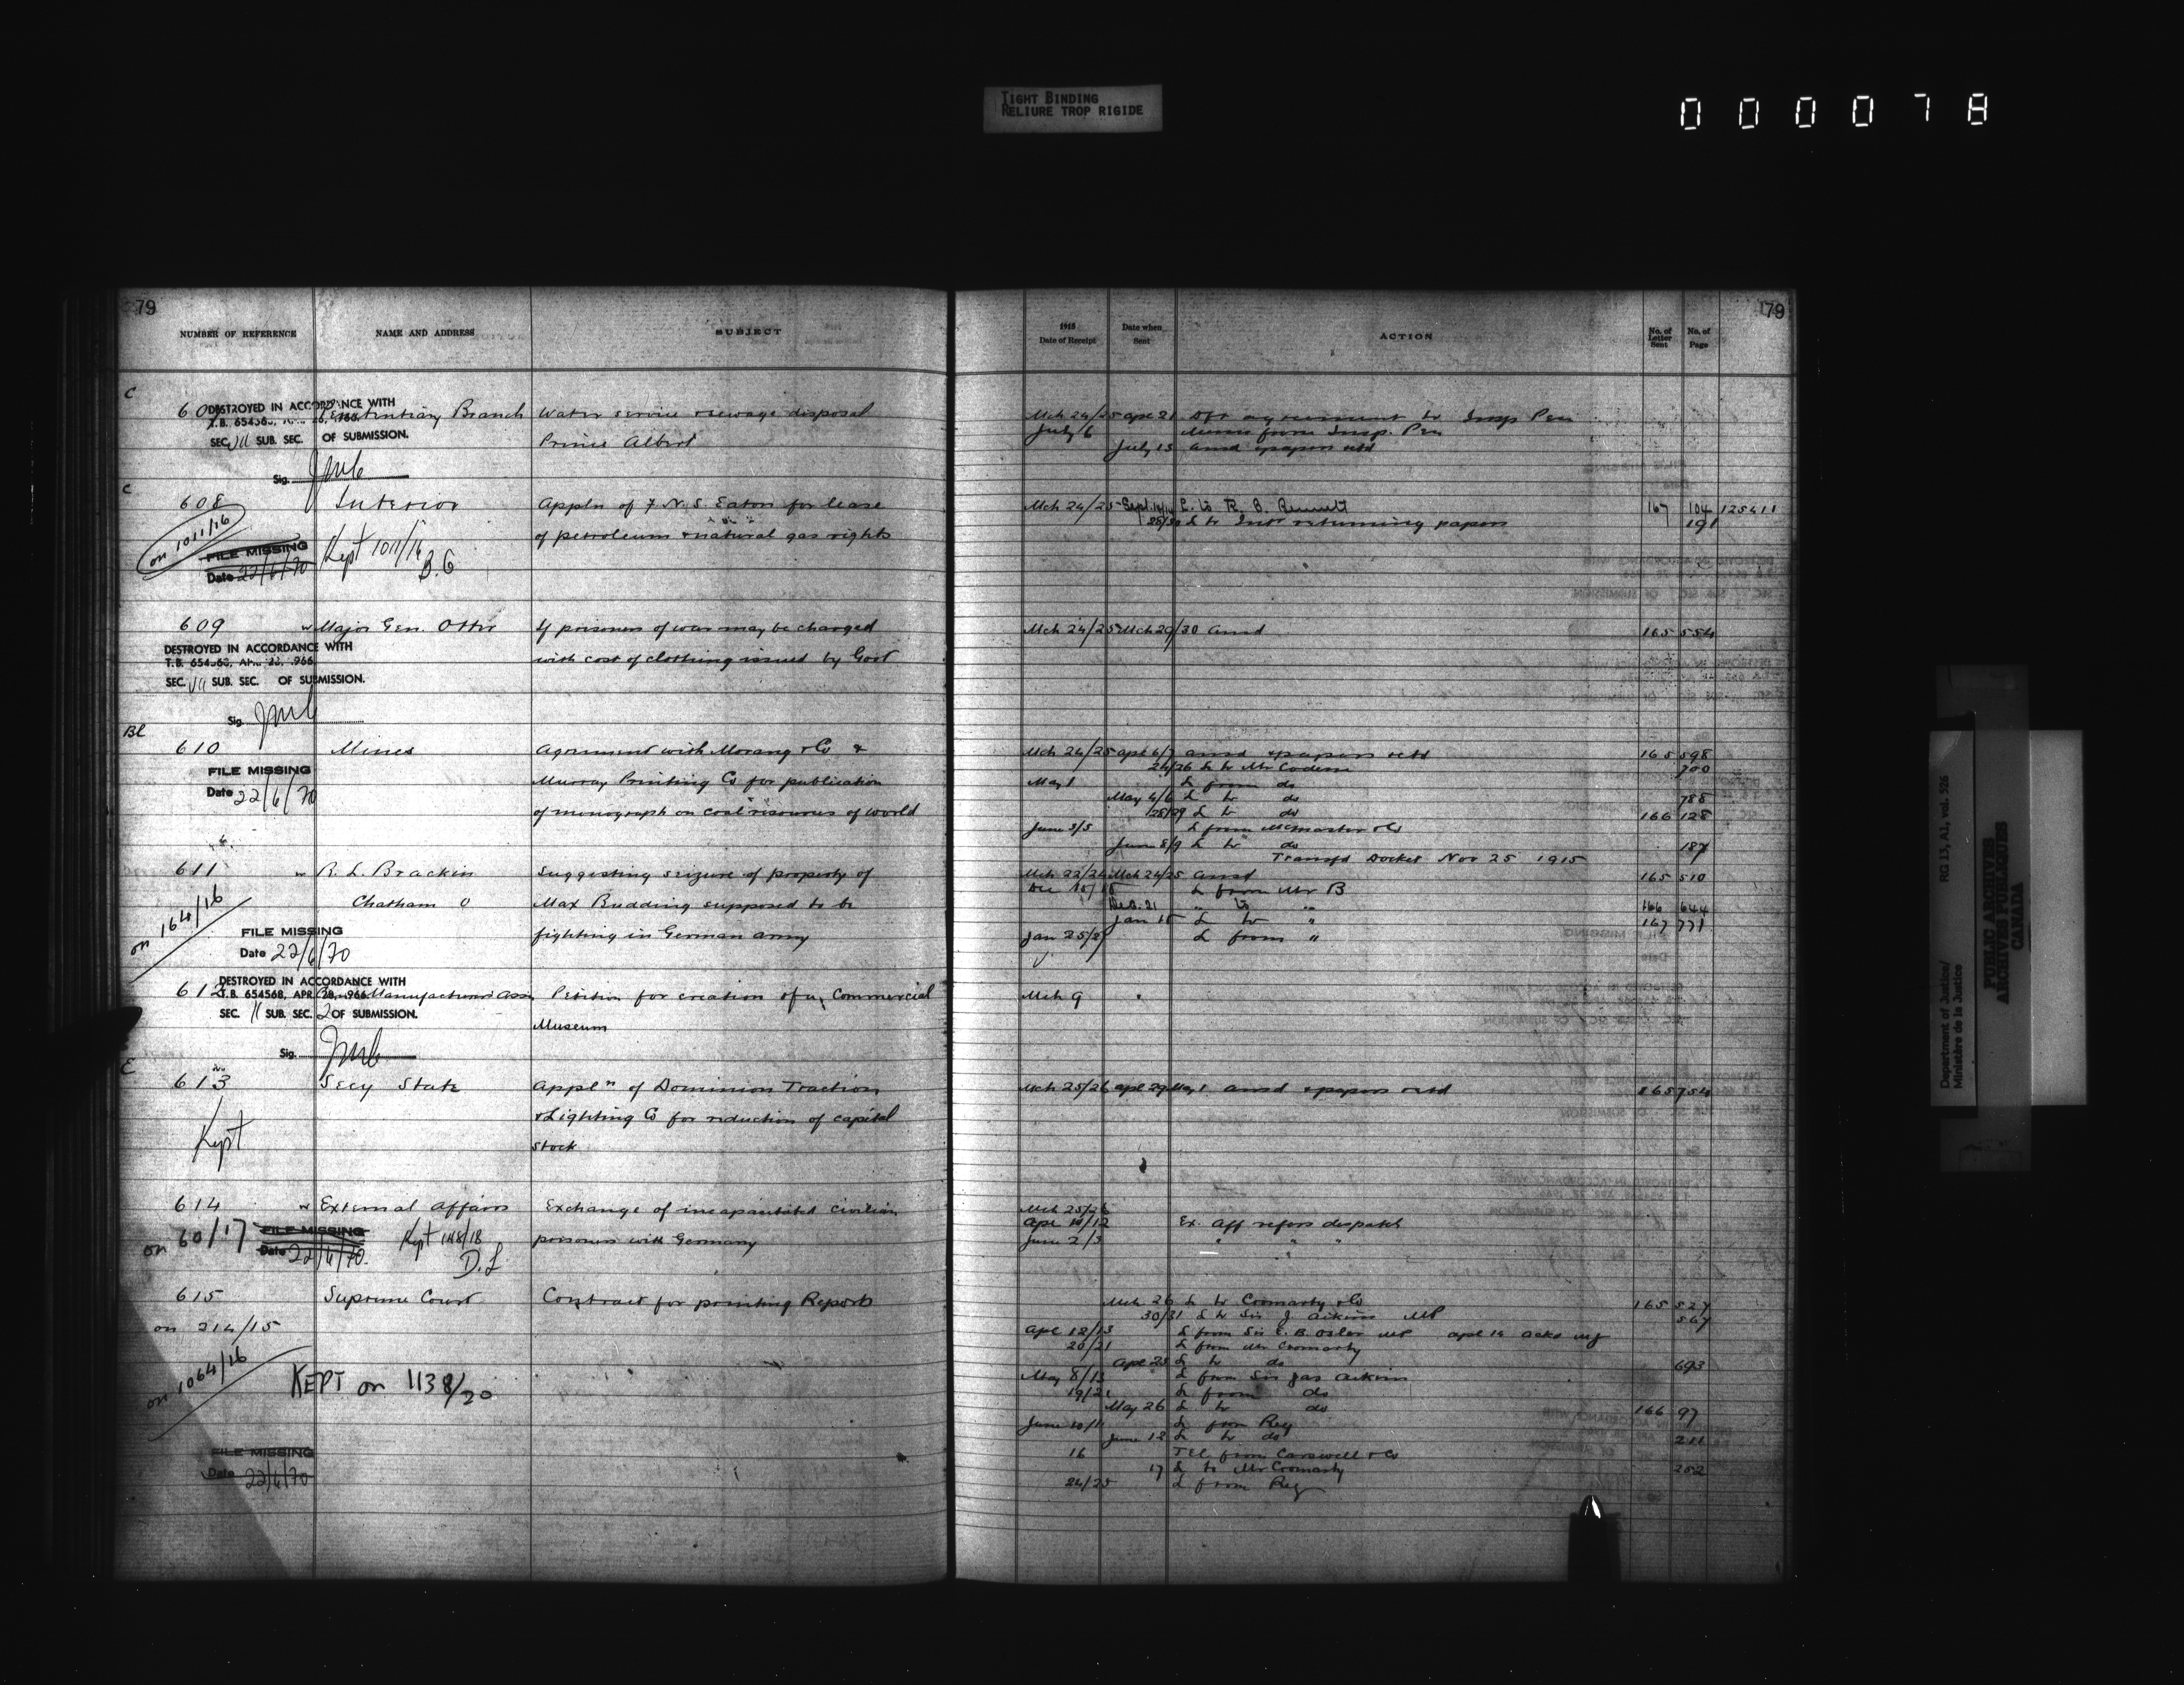 TIGHT BINDING
RELIURE TROP RIGIDE
000078
79
NUMBER OF REFERENCE NAME AND ADDRESS SUBJECT
C
607 Penitentiary Branch Water service & sewage disposal
DESTROYED IN ACCORDANCE WITH
T.B. 654568, APR. 28, 1966
SEC. VII SUB. SEC. OF SUBMISSION.
Prince Albert
Sig.
C
608 Interior Appln of F. N. S. Eaton for lease
on 1011/16
of petroleum & natural gas rights
FILE MISSING Kept 1011/16
Date 22/6/70 B.G
609 w Major Gen. Otter If prisoners of war may be charged
DESTROYED IN ACCORDANCE WITH
T.B. 654568, APR. 28, 1966
with cost of clothing issued by Govt
SEC. VII SUB. SEC. OF SUBMISSION.
Sig.
Bl
610 Mines Agreement with Morang & Co &
FILE MISSING
Date 22/6/70
Murray Printing Co for publication
of monograph on coal resources of world
611 w R. L. Brackin Suggesting seizure of property of
on 164/16
Chatham O Max Budding supposed to be
FILE MISSING
fighting in German army
Date 22/6/70
DESTROYED IN ACCORDANCE WITH
612 Manufacturers Assn Petition for creation of a Commercial
T.B. 654568, APR. 28, 1966
SEC. 11 SUB. SEC. 2 OF SUBMISSION.
Museum
Sig.
C
613 Secy State Appln of Dominion Traction
& Lighting Co for reduction of capital
Kept
stock
614 w External Affairs Exchange of incapacitated civilian
on 60/17 FILE MISSING Kept 148/18
prisoners with Germany
Date 22/6/70. D.L
615 Supreme Court Contract for printing Reports
on 214/15
on 1064/16
KEPT on 1138/20
FILE MISSING
Date 22/6/70
79
1915
Date of Receipt Date when Sent ACTION No. of Letter Sent No. of Page
Mch 24/25 Apl 21 Dft agreement to Insp Pen
July 6 Memo from Insp. Pen
July 15 Ansd & papers retd
Mch 24/25 Sept. L. to R. B. Bennett 167 104 125411
L to Intr returning papers 191
Mch 24/25 Mch 29/30 Ansd 165 554
Mch 24/25 Apl 6/7 Ansd & papers retd 165 598
24/26 L to Mr Codere 700
May 1 L from do
May 4/6 L to do 788
28/29 L to do 166 128
June 3/5 L from McMaster & Co
June 8/9 L to do 187
Transfd Docket Nov 25 1915
Mch 22/24 Mch 24/25 Ansd 165 510
Dec L from Mr B
Dec. 21 " to " 166 644
Jan 15 L to " 167 771
Jan 25/27 L from "
Mch 9
Mch 25/26 Apl 29 May 1 Ansd & papers retd 165 754
Mch 25/26
Apl 11/12 Ex. Aff refers despatch
June 2/3 " " "
Mch 26 L to Cromarty & Co 165 527
30/31 L to Sir J Aikins MP 567
Apl 12/13 L from Sir E. B. Osler MP Apl 14 acks MJ
20/21 L from Mr Cromarty
Apl 23 L to do 693
May 8/13 L from Sir Jas Aikins
19/21 L from do
May 26 L to do 166 97
June 10/11 L from Reg
June 12 L to do 211
16 Tel from Carswell & Co
17 L to Mr Cromarty 252
24/25 L from Reg
Department of Justice/
Ministère de la Justice
RG 13, A1, vol. 526
PUBLIC ARCHIVES
ARCHIVES PUBLIQUES
CANADA